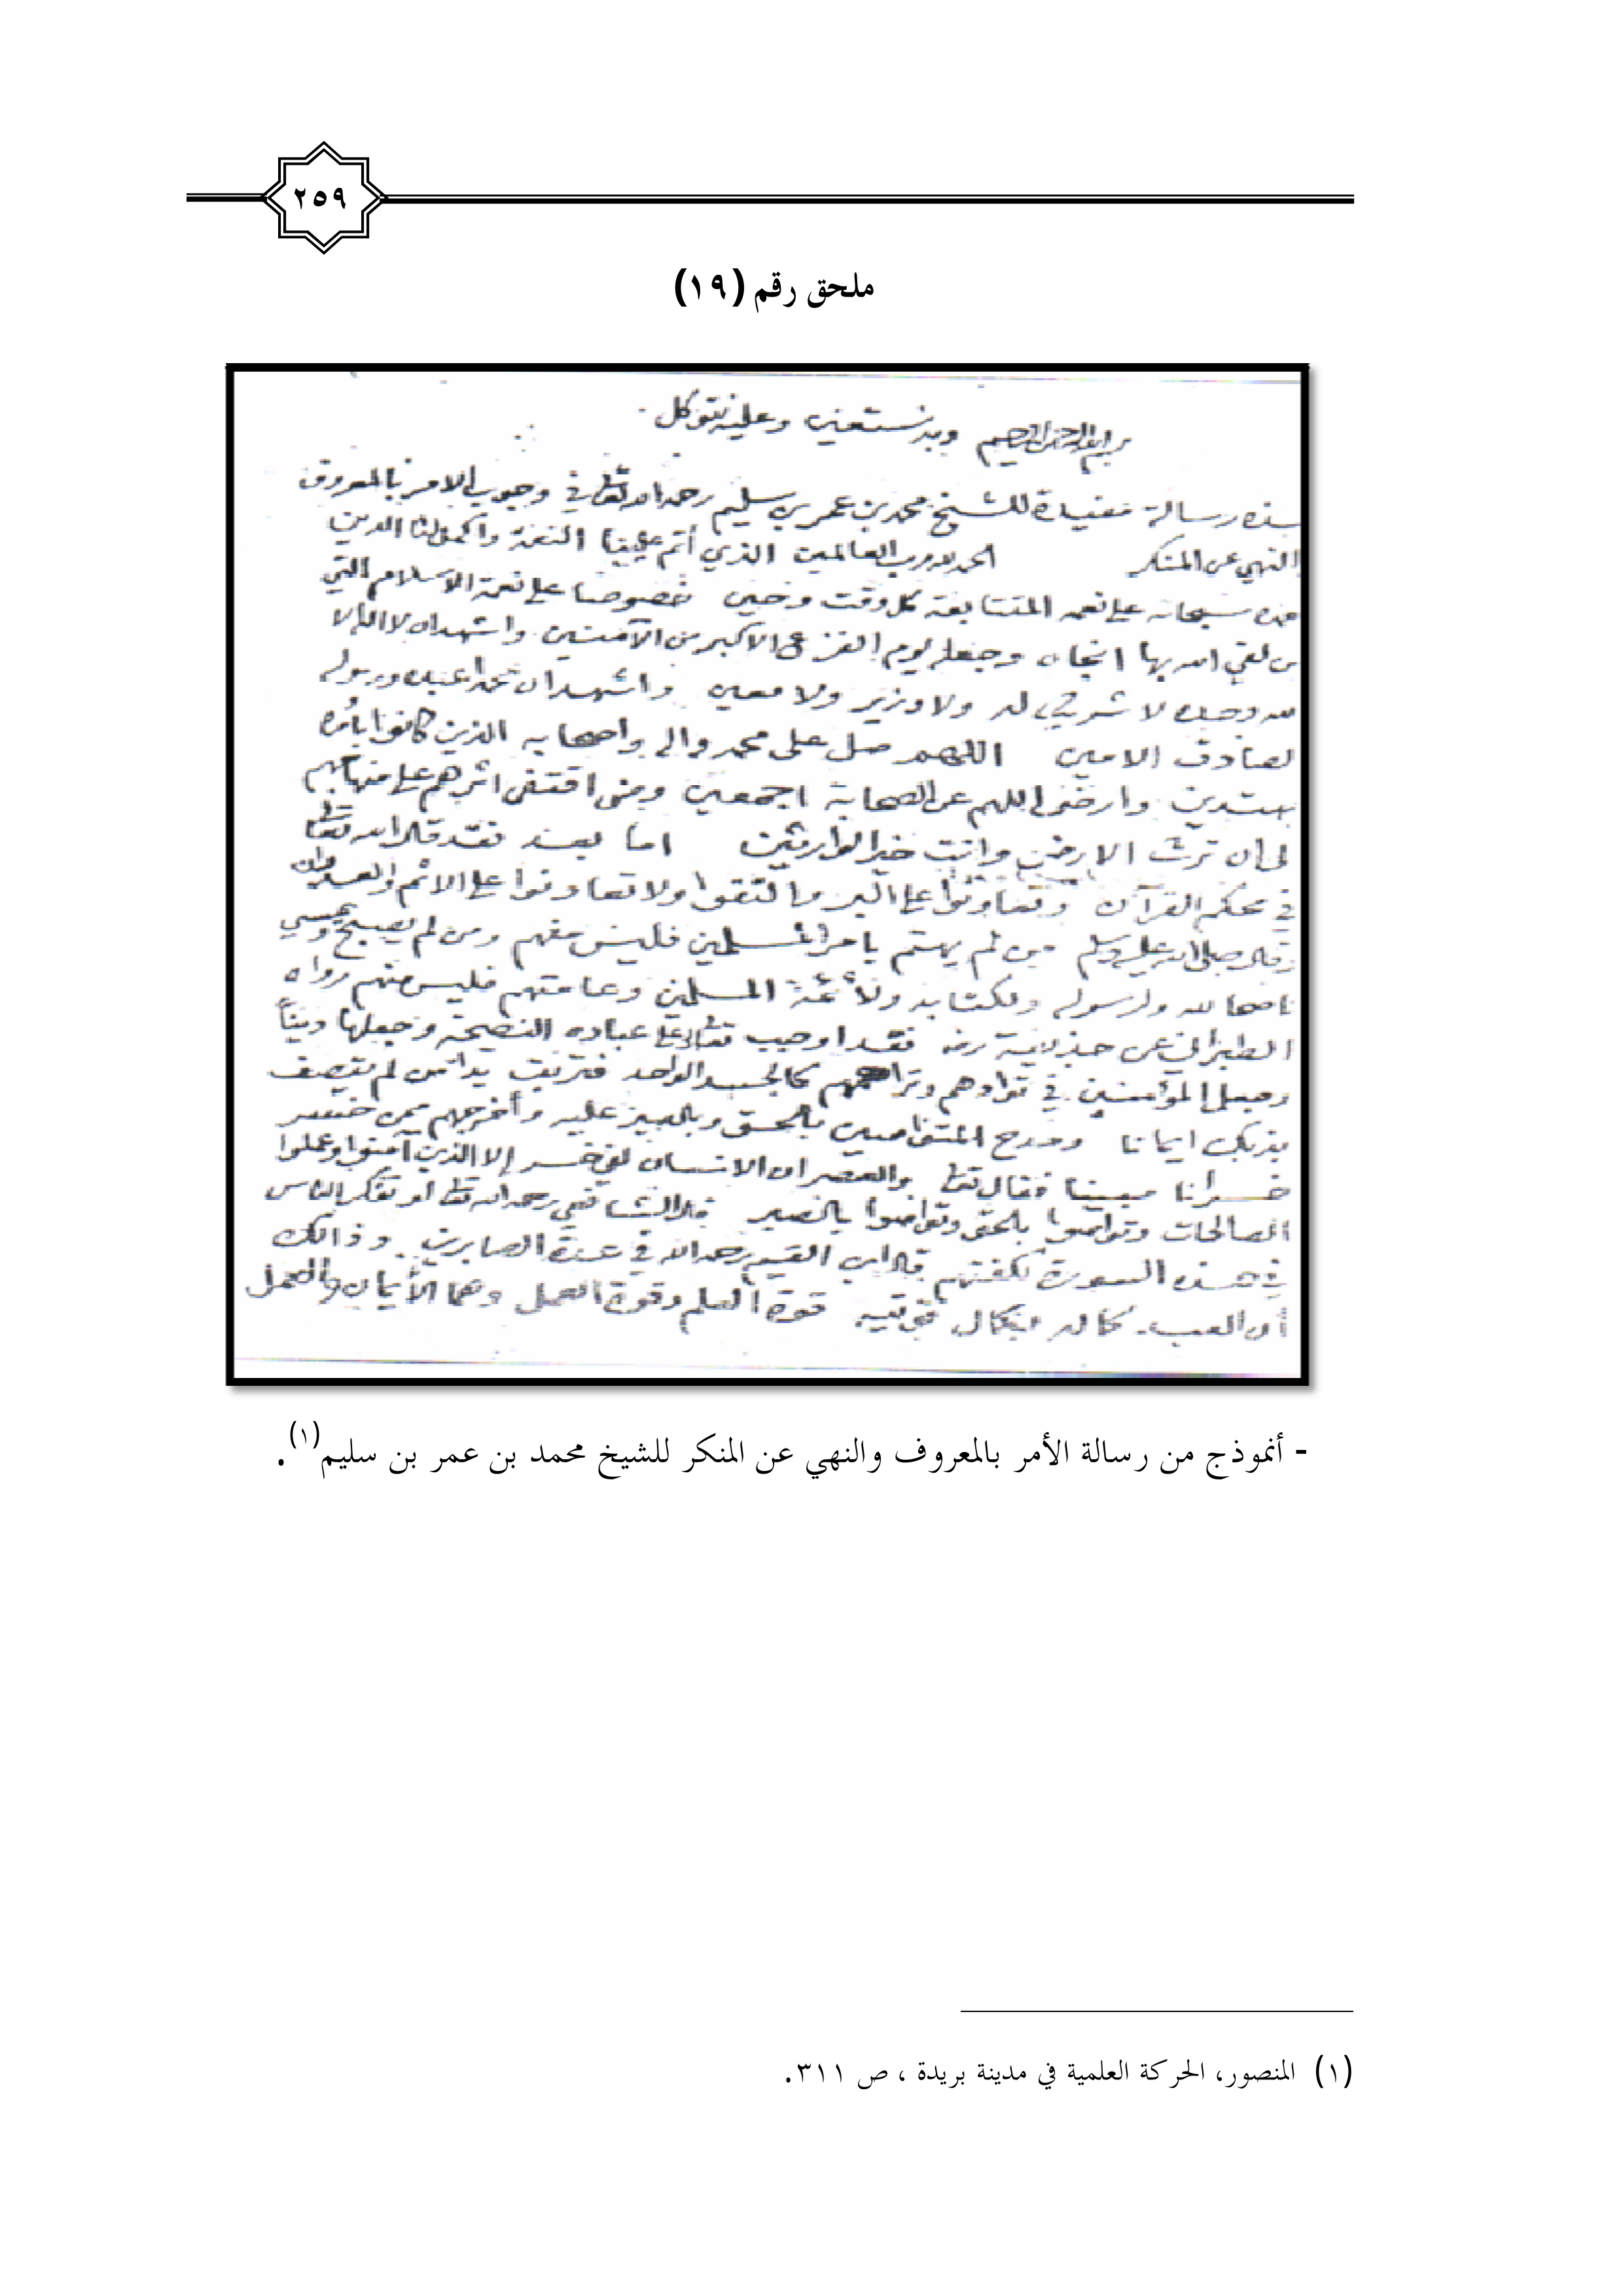 ٢٥٩
ملحق رقم (١٩)
بسم الله الرحمن الرحيم وبه نستعين وعليه نتوكل .
هذه رسالة مفيدة للشيخ محمد بن عمر بن سليم رحمه الله تعالى في وجوب الامر بالمعروف
والنهي عن المنكر الحمد لله رب العالمين الذي أتم علينا النعمة واكمل لنا الدين
سبحانه على نعمه المتتابعة كل وقت وحين خصوصا على نعمة الاسلام التي
من لقي الله بها انجاه وجعله يوم الفزع الاكبر من الآمنين واشهد ان لا اله الا
الله وحده لا شريك له ولا وزير ولا معين واشهد ان محمدا عبده ورسوله
لصادق الامين اللهم صل على محمد واله واصحابه الذين كانوا بأمره
يهتدون وارض اللهم عن الصحابة اجمعين ومن اقتفى اثرهم على منهاجهم
الى ان ترث الارض وانت خير الوارثين اما بعد فقد قال الله تعالى
في محكم القرآن وتعاونوا على البر والتقوى ولا تعاونوا على الاثم والعدوان
وقال صلى الله عليه وسلم من لم يهتم بامر المسلمين فليس منهم ومن لم يصبح ويمسي
ناصحا لله ولرسوله ولكتابه ولأئمة المسلمين وعامتهم فليس منهم رواه
الطبراني عن حذيفة رضه فقد اوجب تعالى على عباده النصيحة وجعلها ديناً
وجعل المؤمنين في توادهم وتراحمهم كالجسد الواحد لم يتصف
بذلك ايمانا ومدح المتواصين بالحق وبالصبر عليه وأخرجهم ممن خسر
خسرانا مبينا فقال تعالى والعصر ان الانسان لفي خسر إلا الذين آمنوا وعملوا
الصالحات وتواصوا بالحق وتواصوا بالصبر قال الشافعي رحمه الله تعالى لو تفكر الناس
في هذه السورة لكفتهم قال ابن القيم رحمه الله في عدة الصابرين . وذالك
أن العبد كماله بتكمال قوتيه قوة العلم وقوة العمل وهما الأيمان والعمل
- أنموذج من رسالة الأمر بالمعروف والنهي عن المنكر للشيخ محمد بن عمر بن سليم(١).
(١) المنصور، الحركة العلمية في مدينة بريدة ، ص ٣١١.